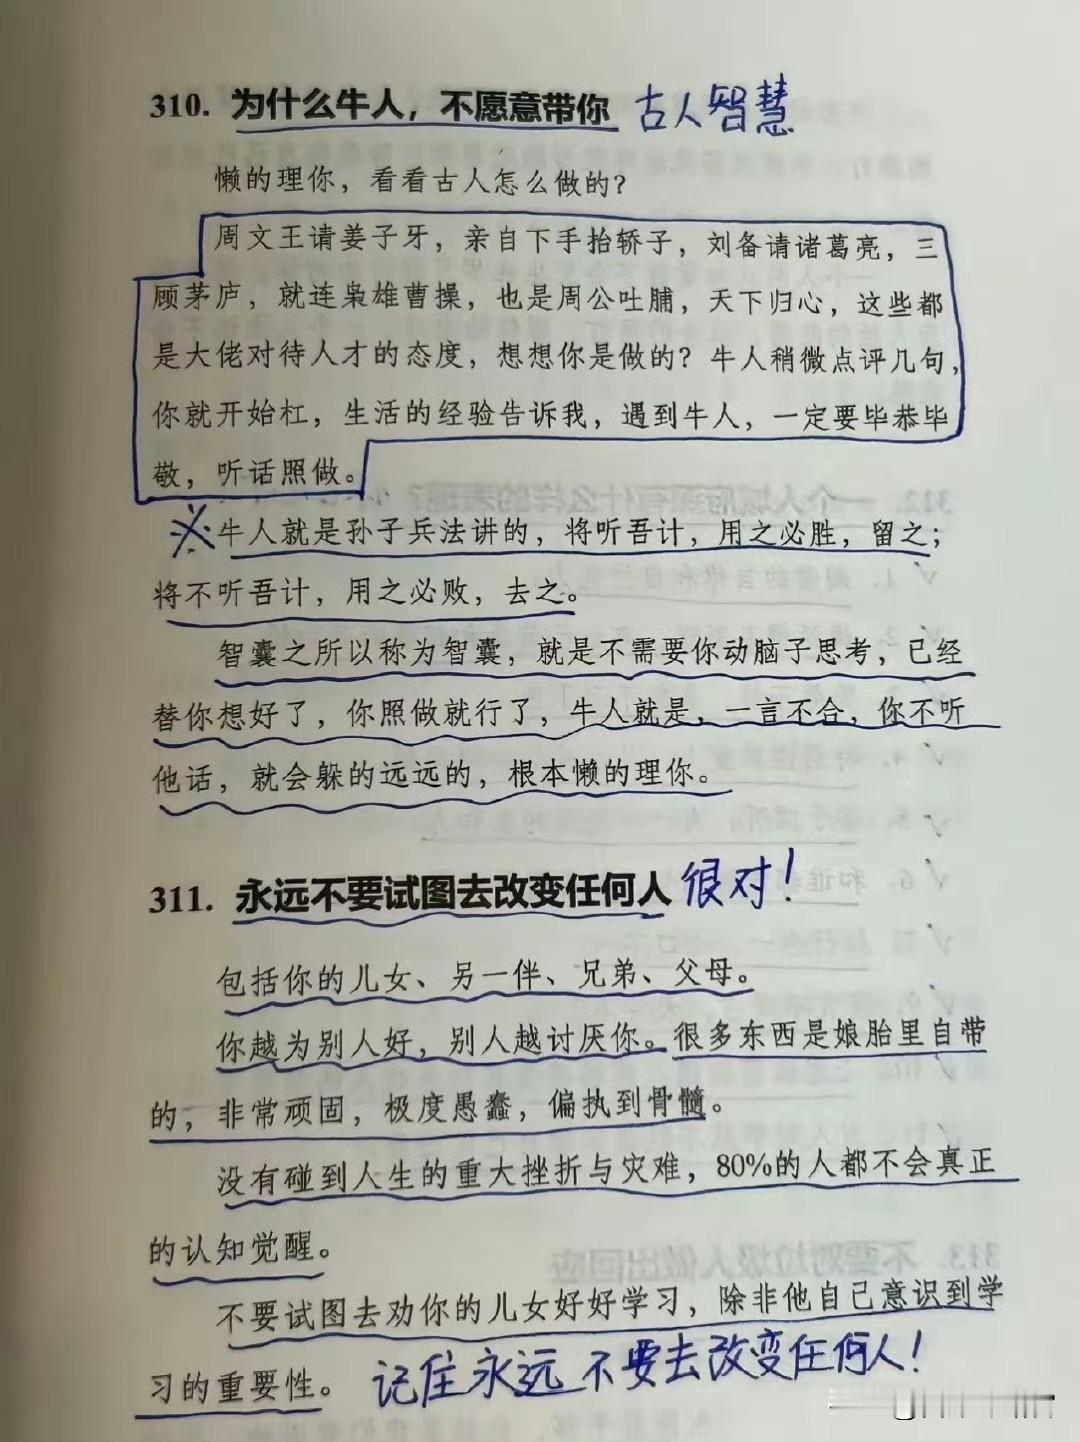 310. 为什么牛人，不愿意带你 古人智慧
懒的理你，看看古人怎么做的？
周文王请姜子牙，亲自下手抬轿子，刘备请诸葛亮，三
顾茅庐，就连枭雄曹操，也是周公吐脯，天下归心，这些都
是大佬对待人才的态度，想想你是做的？牛人稍微点评几句，
你就开始杠，生活的经验告诉我，遇到牛人，一定要毕恭毕
敬，听话照做。
※牛人就是孙子兵法讲的，将听吾计，用之必胜，留之；
将不听吾计，用之必败，去之。
智囊之所以称为智囊，就是不需要你动脑子思考，已经
替你想好了，你照做就行了，牛人就是，一言不合，你不听
他话，就会躲的远远的，根本懒的理你。
311. 永远不要试图去改变任何人 很对！
包括你的儿女、另一伴、兄弟、父母。
你越为别人好，别人越讨厌你。很多东西是娘胎里自带
的，非常顽固，极度愚蠢，偏执到骨髓。
没有碰到人生的重大挫折与灾难，80%的人都不会真正
的认知觉醒。
不要试图去劝你的儿女好好学习，除非他自己意识到学
习的重要性。 记住永远不要去改变任何人！